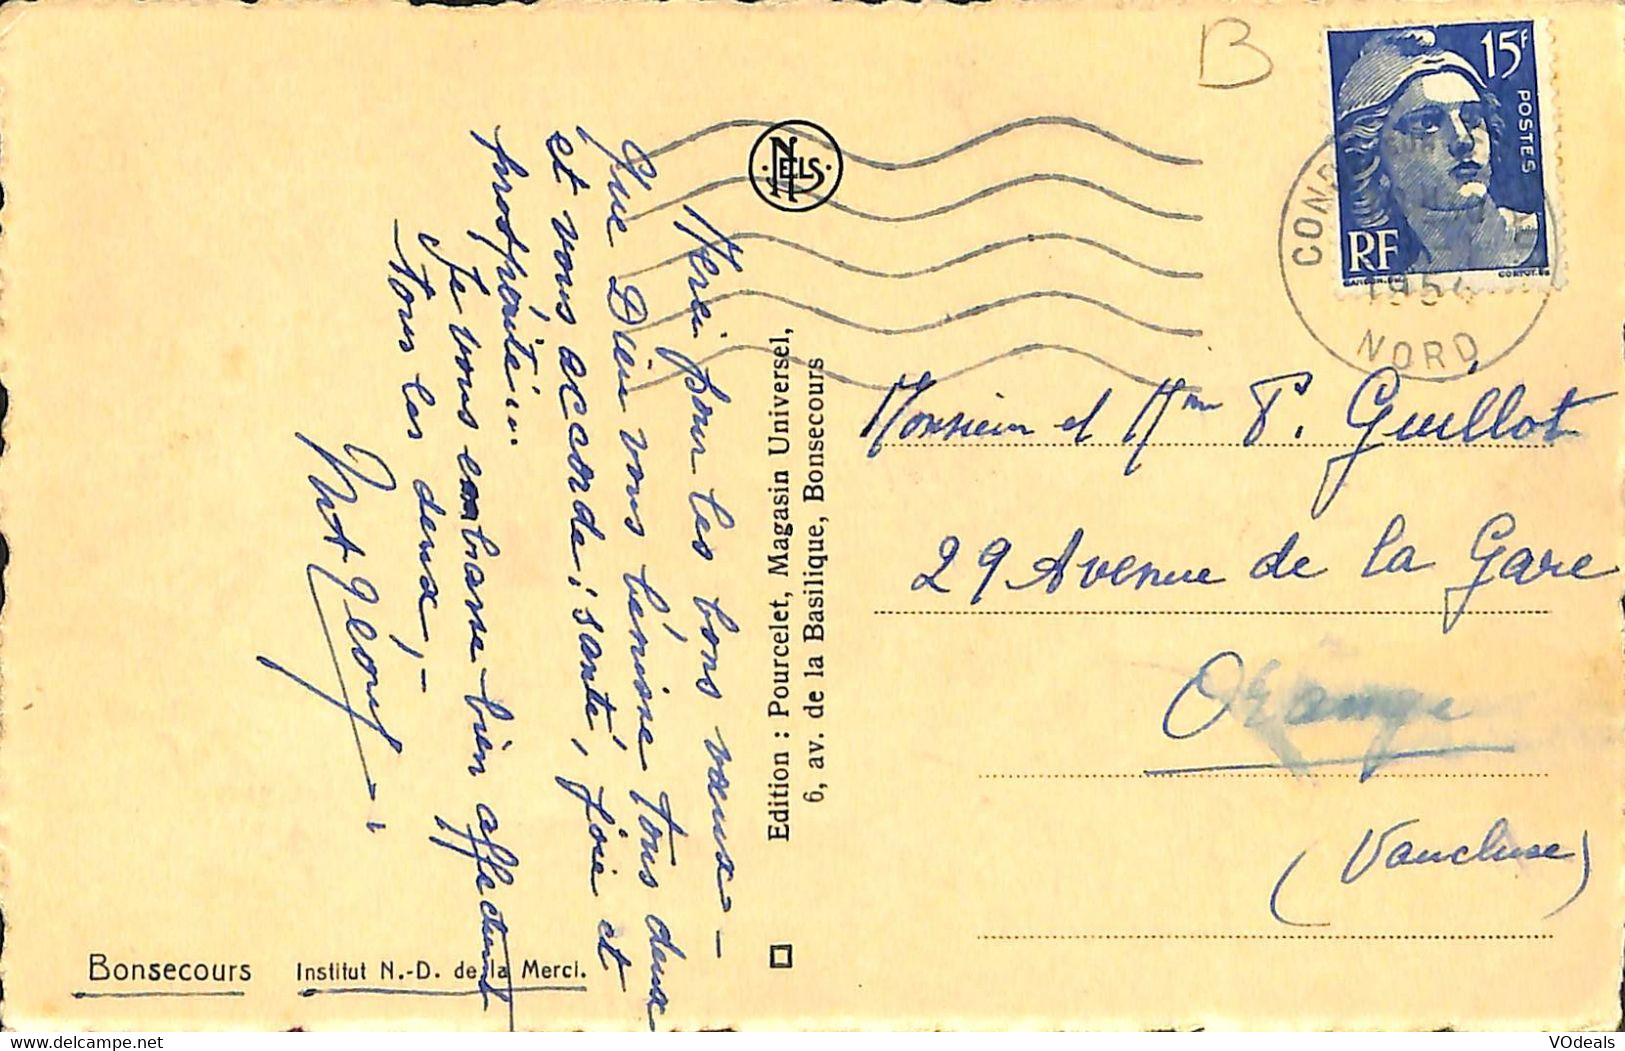 B
15F
POSTES
RF
1954
NORD
NELS
Merci pour les bons vœux –
Que Dieu vous bénisse tous deux
et vous accorde : santé, joie et
prospérité...
Je vous embrasse bien affectueust
tous les deux, –
Edition : Pourcelet, Magasin Universel,
6, av. de la Basilique, Bonsecours
Monsieur et Mme P. Guillot
29 Avenue de la Gare
Orange
(Vaucluse)
Bonsecours Institut N.-D. de la Merci.
www.delcampe.net
VOdeals